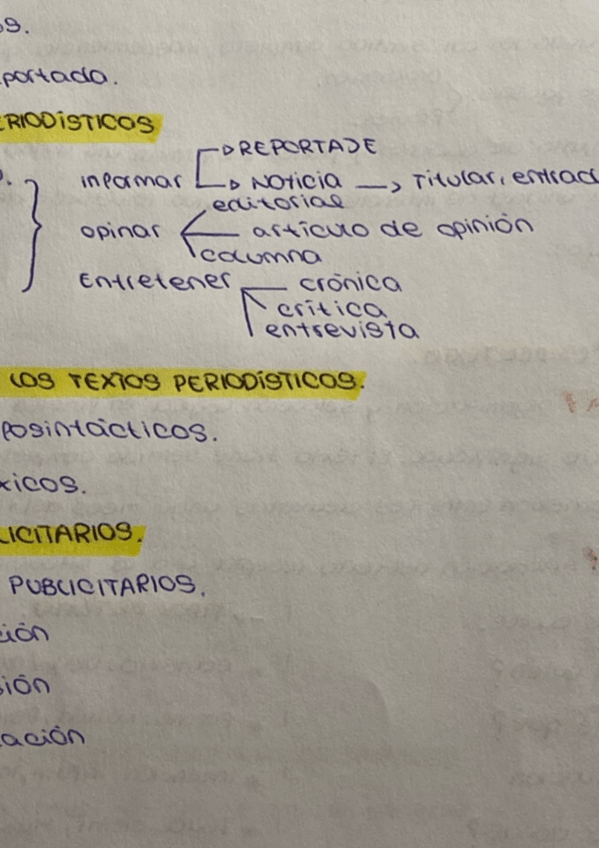 os.
portada.
ERIODÍSTICOS
REPORTAJE
informar
NOTICIA → Titular, entrad
editorial
opinar
artículo de opinión
columna
Entretener
crónica
crítica
entrevista
LOS TEXTOS PERIODÍSTICOS.
fosintácticos.
xicos.
LICITARIOS.
PUBLICITARIOS.
ción
sión
ación